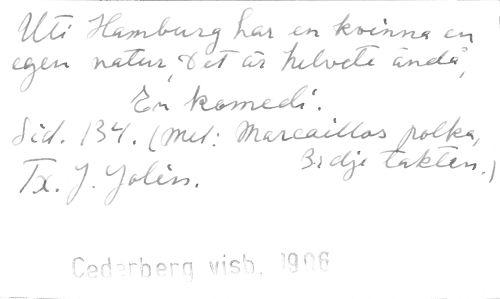 Uti Hamburg har en kvinna en
egen natur, det är helvete ändå,
En komedi.
Sid. 134. (Mel: Marcaillos polka,
3:dje takten.)
Tx. J. Jolin.
Cederberg visb. 1906